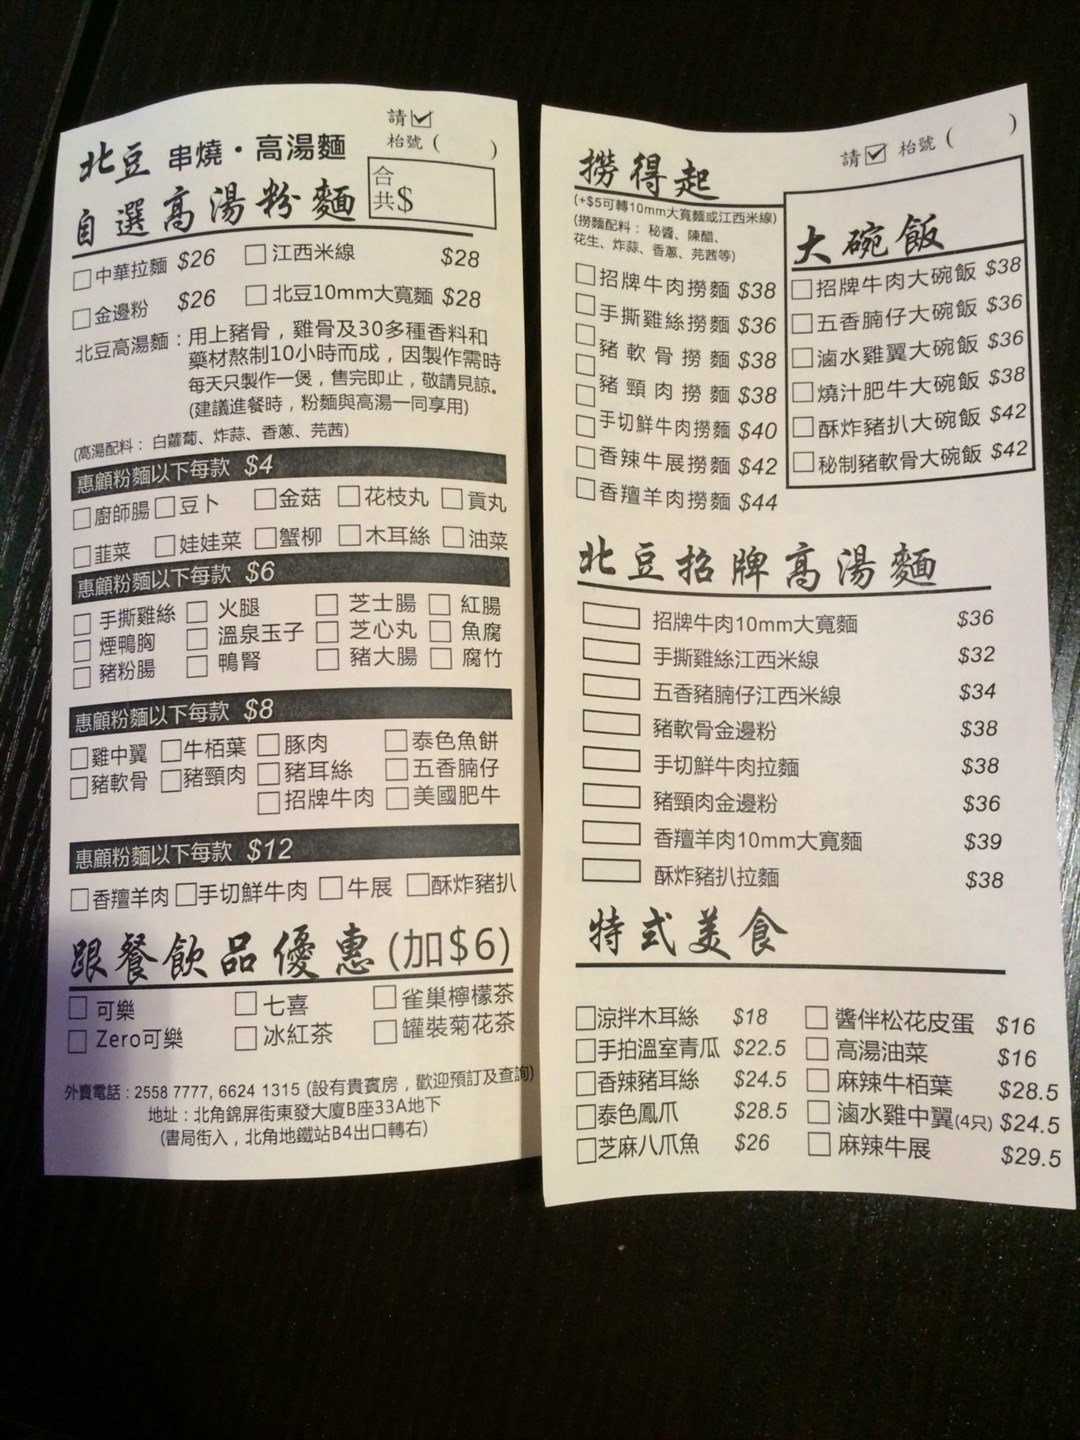 請☑
枱號 ( )
北豆 串燒・高湯麵
合共$
自選高湯粉麵
□中華拉麵 $26 □江西米線 $28
□金邊粉 $26 □北豆10mm大寬麵 $28
北豆高湯麵：用上豬骨，雞骨及30多種香料和
藥材熬制10小時而成，因製作需時
每天只製作一煲，售完即止，敬請見諒。
(建議進餐時，粉麵與高湯一同享用)
(高湯配料： 白蘿蔔、炸蒜、香蔥、芫茜)
惠顧粉麵以下每款 $4
□廚師腸 □豆卜 □金菇 □花枝丸 □貢丸
□韮菜 □娃娃菜 □蟹柳 □木耳絲 □油菜
惠顧粉麵以下每款 $6
□手撕雞絲 □火腿 □芝士腸 □紅腸
□煙鴨胸 □溫泉玉子 □芝心丸 □魚腐
□豬粉腸 □鴨腎 □豬大腸 □腐竹
惠顧粉麵以下每款 $8
□雞中翼 □牛栢葉 □豚肉 □泰色魚餅
□豬軟骨 □豬頸肉 □豬耳絲 □五香腩仔
□招牌牛肉 □美國肥牛
惠顧粉麵以下每款 $12
□香羶羊肉 □手切鮮牛肉 □牛展 □酥炸豬扒
跟餐飲品優惠(加$6)
□可樂 □七喜 □雀巢檸檬茶
□Zero可樂 □冰紅茶 □罐裝菊花茶
外賣電話：2558 7777, 6624 1315 (設有貴賓房，歡迎預訂及查詢)
地址：北角錦屏街東發大廈B座33A地下
(書局街入，北角地鐵站B4出口轉右)
請☑ 枱號 ( )
撈得起
(+$5可轉10mm大寬麵或江西米線)
(撈麵配料： 秘醬、陳醋、
花生、炸蒜、香蔥、芫茜等)
□招牌牛肉撈麵 $38
□手撕雞絲撈麵 $36
□豬軟骨撈麵 $38
□豬頸肉撈麵 $38
□手切鮮牛肉撈麵 $40
□香辣牛展撈麵 $42
□香羶羊肉撈麵 $44
大碗飯
□招牌牛肉大碗飯 $38
□五香腩仔大碗飯 $36
□滷水雞翼大碗飯 $36
□燒汁肥牛大碗飯 $38
□酥炸豬扒大碗飯 $42
□秘制豬軟骨大碗飯 $42
北豆招牌高湯麵
招牌牛肉10mm大寬麵 $36
手撕雞絲江西米線 $32
五香豬腩仔江西米線 $34
豬軟骨金邊粉 $38
手切鮮牛肉拉麵 $38
豬頸肉金邊粉 $36
香羶羊肉10mm大寬麵 $39
酥炸豬扒拉麵 $38
特式美食
□涼拌木耳絲 $18 □醬伴松花皮蛋 $16
□手拍溫室青瓜 $22.5 □高湯油菜 $16
□香辣豬耳絲 $24.5 □麻辣牛栢葉 $28.5
□泰色鳳爪 $28.5 □滷水雞中翼(4只) $24.5
□芝麻八爪魚 $26 □麻辣牛展 $29.5